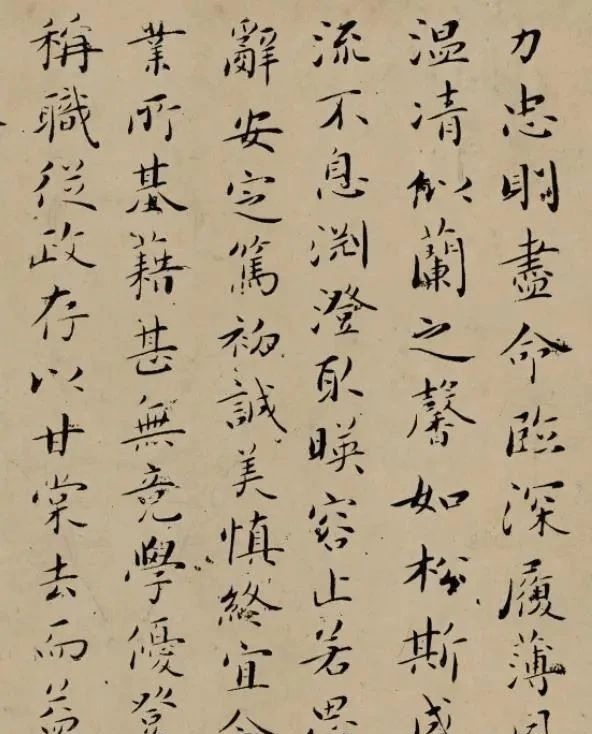 力忠則盡命臨深履薄
温清似蘭之馨如松斯盛
流不息淵澄取暎容止若思
辭安定篤初誠美慎終宜令
業所基藉甚無竟學優登
稱職從政存以甘棠去而益